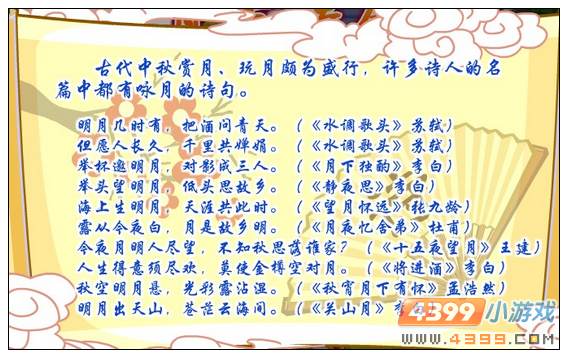 古代中秋赏月、玩月颇为盛行，许多诗人的名
篇中都有咏月的诗句。
明月几时有，把酒问青天。（《水调歌头》苏轼）
但愿人长久，千里共婵娟。（《水调歌头》苏轼）
举杯邀明月，对影成三人。（《月下独酌》李白）
举头望明月，低头思故乡。（《静夜思》李白）
海上生明月，天涯共此时。（《望月怀远》张九龄）
露从今夜白，月是故乡明。（《月夜忆舍弟》杜甫）
今夜月明人尽望，不知秋思落谁家？（《十五夜望月》王建）
人生得意须尽欢，莫使金樽空对月。（《将进酒》李白）
秋空明月悬，光彩露沾湿。（《秋宵月下有怀》孟浩然）
明月出天山，苍茫云海间。（《关山月》李白）
4399小游戏
www.4399.com